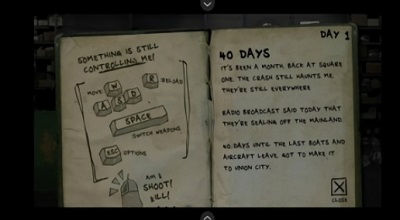 SOMETHING IS STILL
CONTROLLING ME!
MOVE
W
R
RELOAD
A S D
SPACE
SWITCH WEAPONS
ESC
OPTIONS
AIM &
SHOOT!
KILL!
DAY 1
40 DAYS
IT'S BEEN A MONTH, BACK AT SQUARE
ONE. THE CRASH STILL HAUNTS ME
THEY'RE STILL EVERYWHERE
RADIO BROADCAST SAID TODAY THAT
THEY'RE SEALING OFF THE MAINLAND.
40 DAYS UNTIL THE LAST BOATS AND
AIRCRAFT LEAVE. GOT TO MAKE IT
TO UNION CITY.
CLOSE